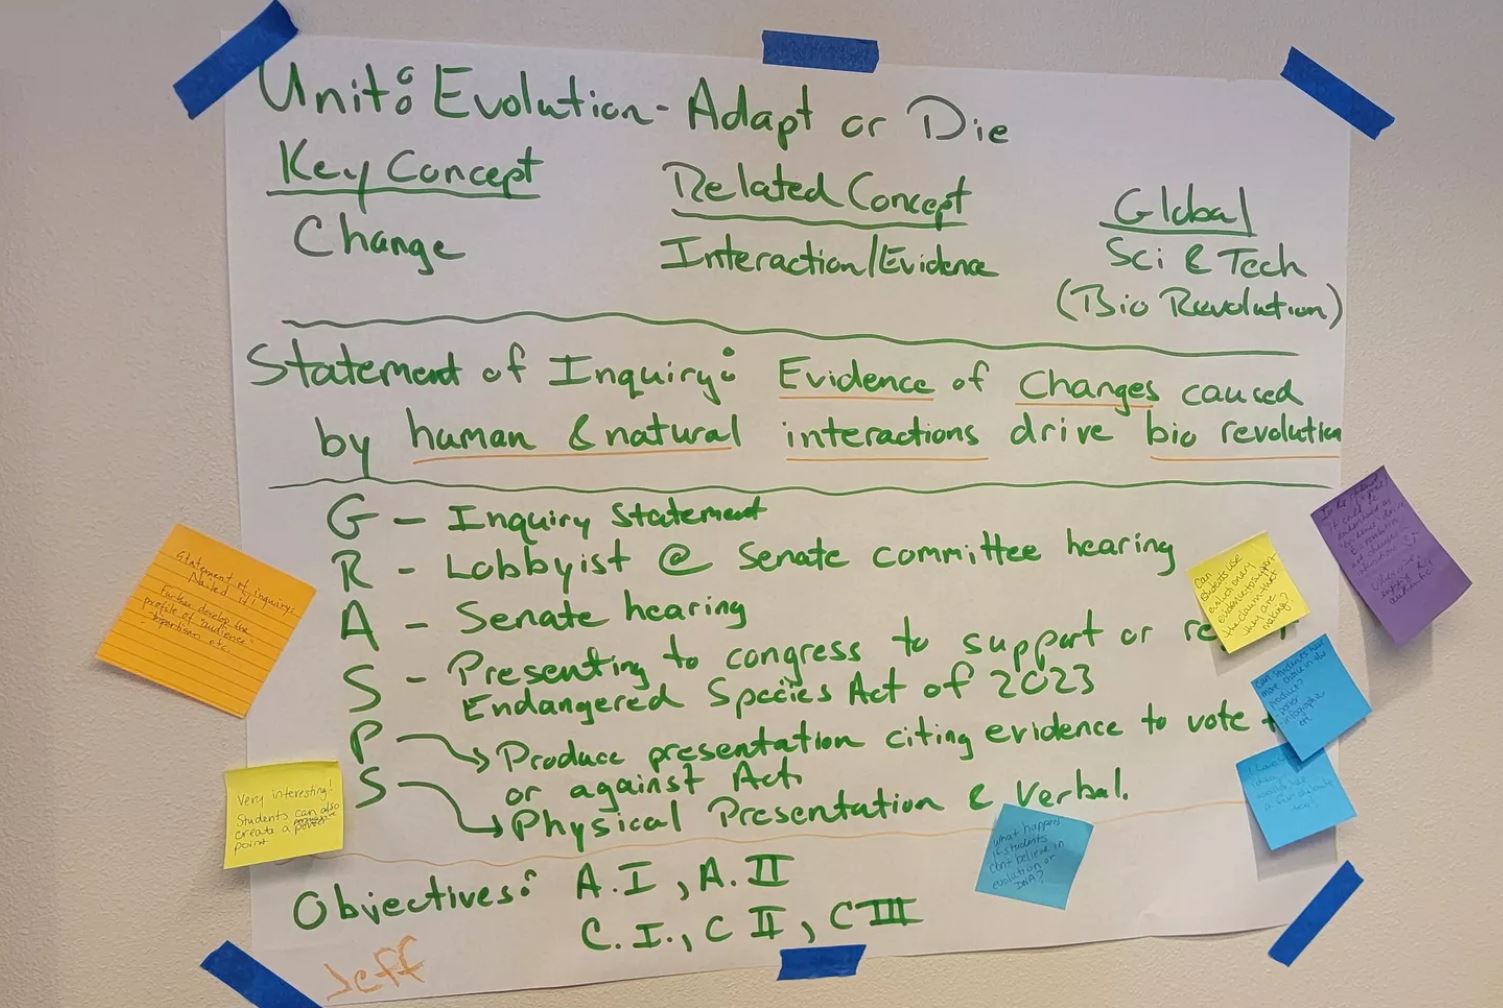 Unit: Evolution - Adapt or Die
Key Concept
Change
Related Concept
Interaction/Evidence
Global
Sci & Tech
(Bio Revolution)
Statement of Inquiry: Evidence of Changes caused
by human & natural interactions drive bio revolution
G - Inquiry Statement
R - Lobbyist @ Senate committee hearing
A - Senate hearing
S - Presenting to congress to support or
Endangered Species Act of 2023
P Produce presentation citing evidence to vote
or against Act.
S Physical Presentation & Verbal.
Objectives: A.I, A.II
C.I., C II, C III
Jeff
Statement of inquiry:
Nailed it!
Further develop the
profile of "audience"
- bipartisan etc.
Very interesting!
Students can also
create a power
point
Can
students use
evolutionary
evidence to support
the claim that
they are
making?
Can students have
more choice in
product?
infographic
etc
I love
idea
a
What happens
if students
don't believe in
evolution or
DNA?